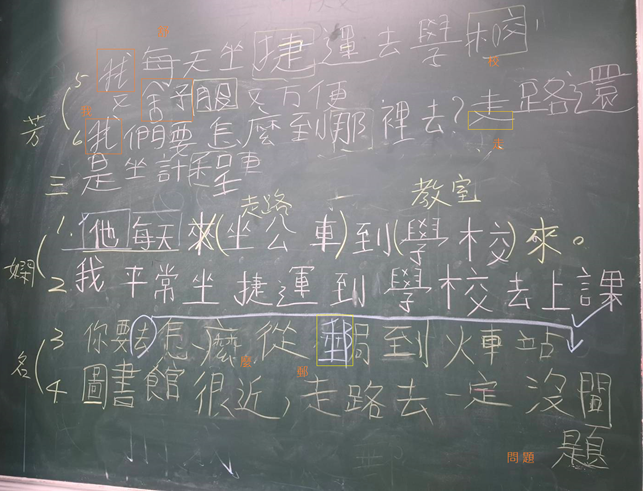 我每天坐捷運去學校,
又舒服又方便
校
我
芳
5
6
我們要怎麼到那裡去?走路還
走
是坐計程車
三
走路
教室
1. 他每天來(坐公車)到(學校)來。
嫻
2 我平常坐捷運到學校去上課
3 你要去怎麼從郵局到火車站
麼
郵
名
4. 圖書館很近,走路去一定沒問
題
問題